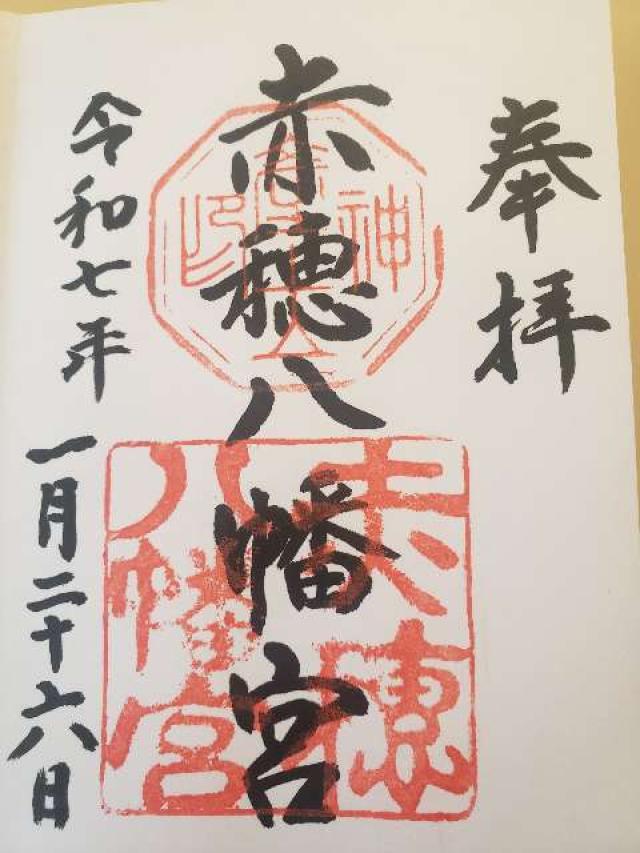 奉拝
赤穂八幡宮
令和七年一月二十六日
赤穂
八幡宮